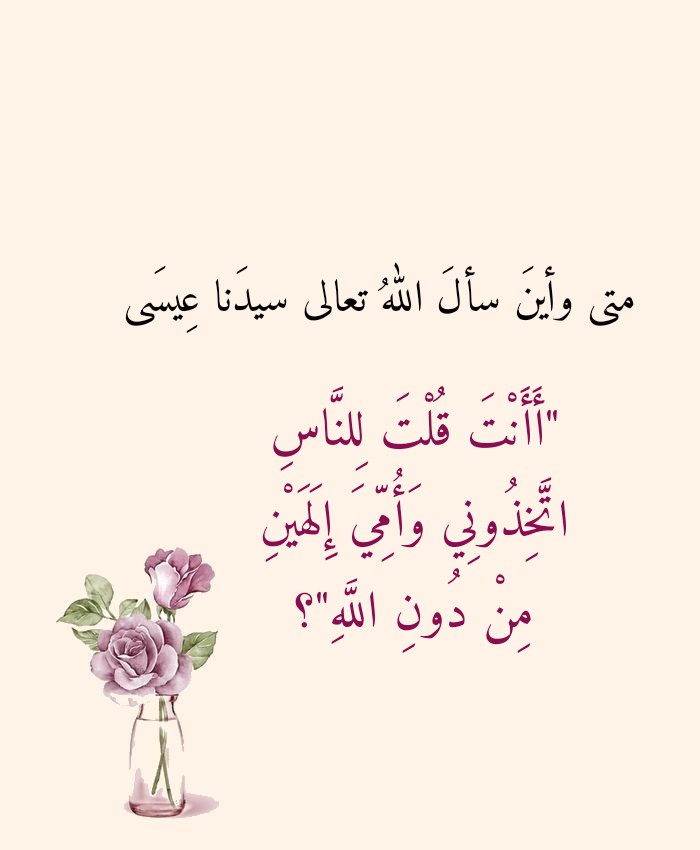 متى وأينَ سألَ اللهُ تعالى سيدَنا عِيسَى
"أَأَنْتَ قُلْتَ لِلنَّاسِ
اتَّخِذُونِي وَأُمِّيَ إِلَهَيْنِ
مِنْ دُونِ اللَّهِ"؟